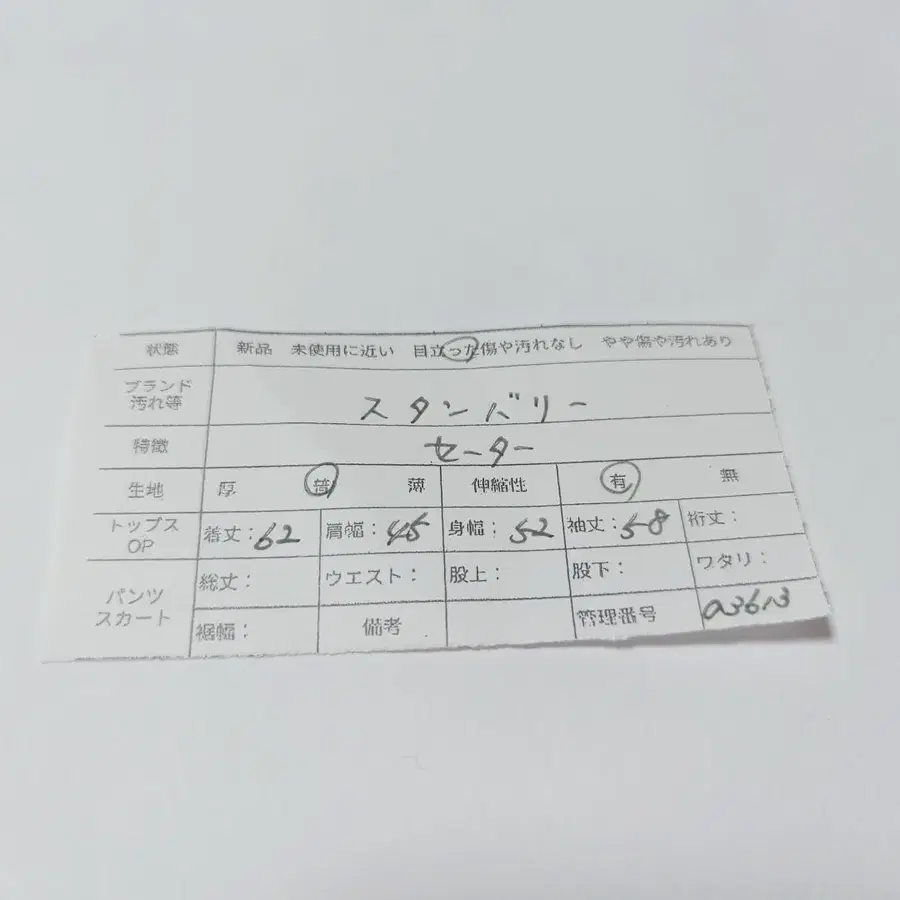 状態 新品 未使用に近い 目立った傷や汚れなし やや傷や汚れあり
ブランド
汚れ等 スタンバリー
特徴 セーター
生地 厚 普 薄 伸縮性 有 無
トップス
OP 着丈：62 肩幅：45 身幅：52 袖丈：58 裄丈：
パンツ
スカート 総丈： ウエスト： 股上： 股下： ワタリ：
裾幅： 備考 管理番号